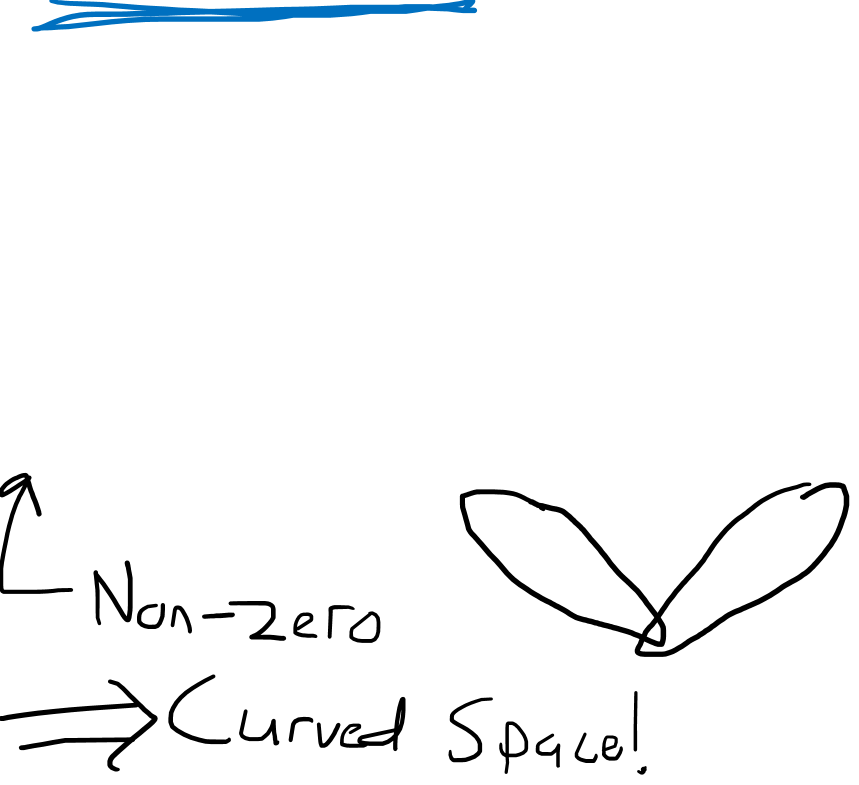 Non-zero
⇒ Curved Space!